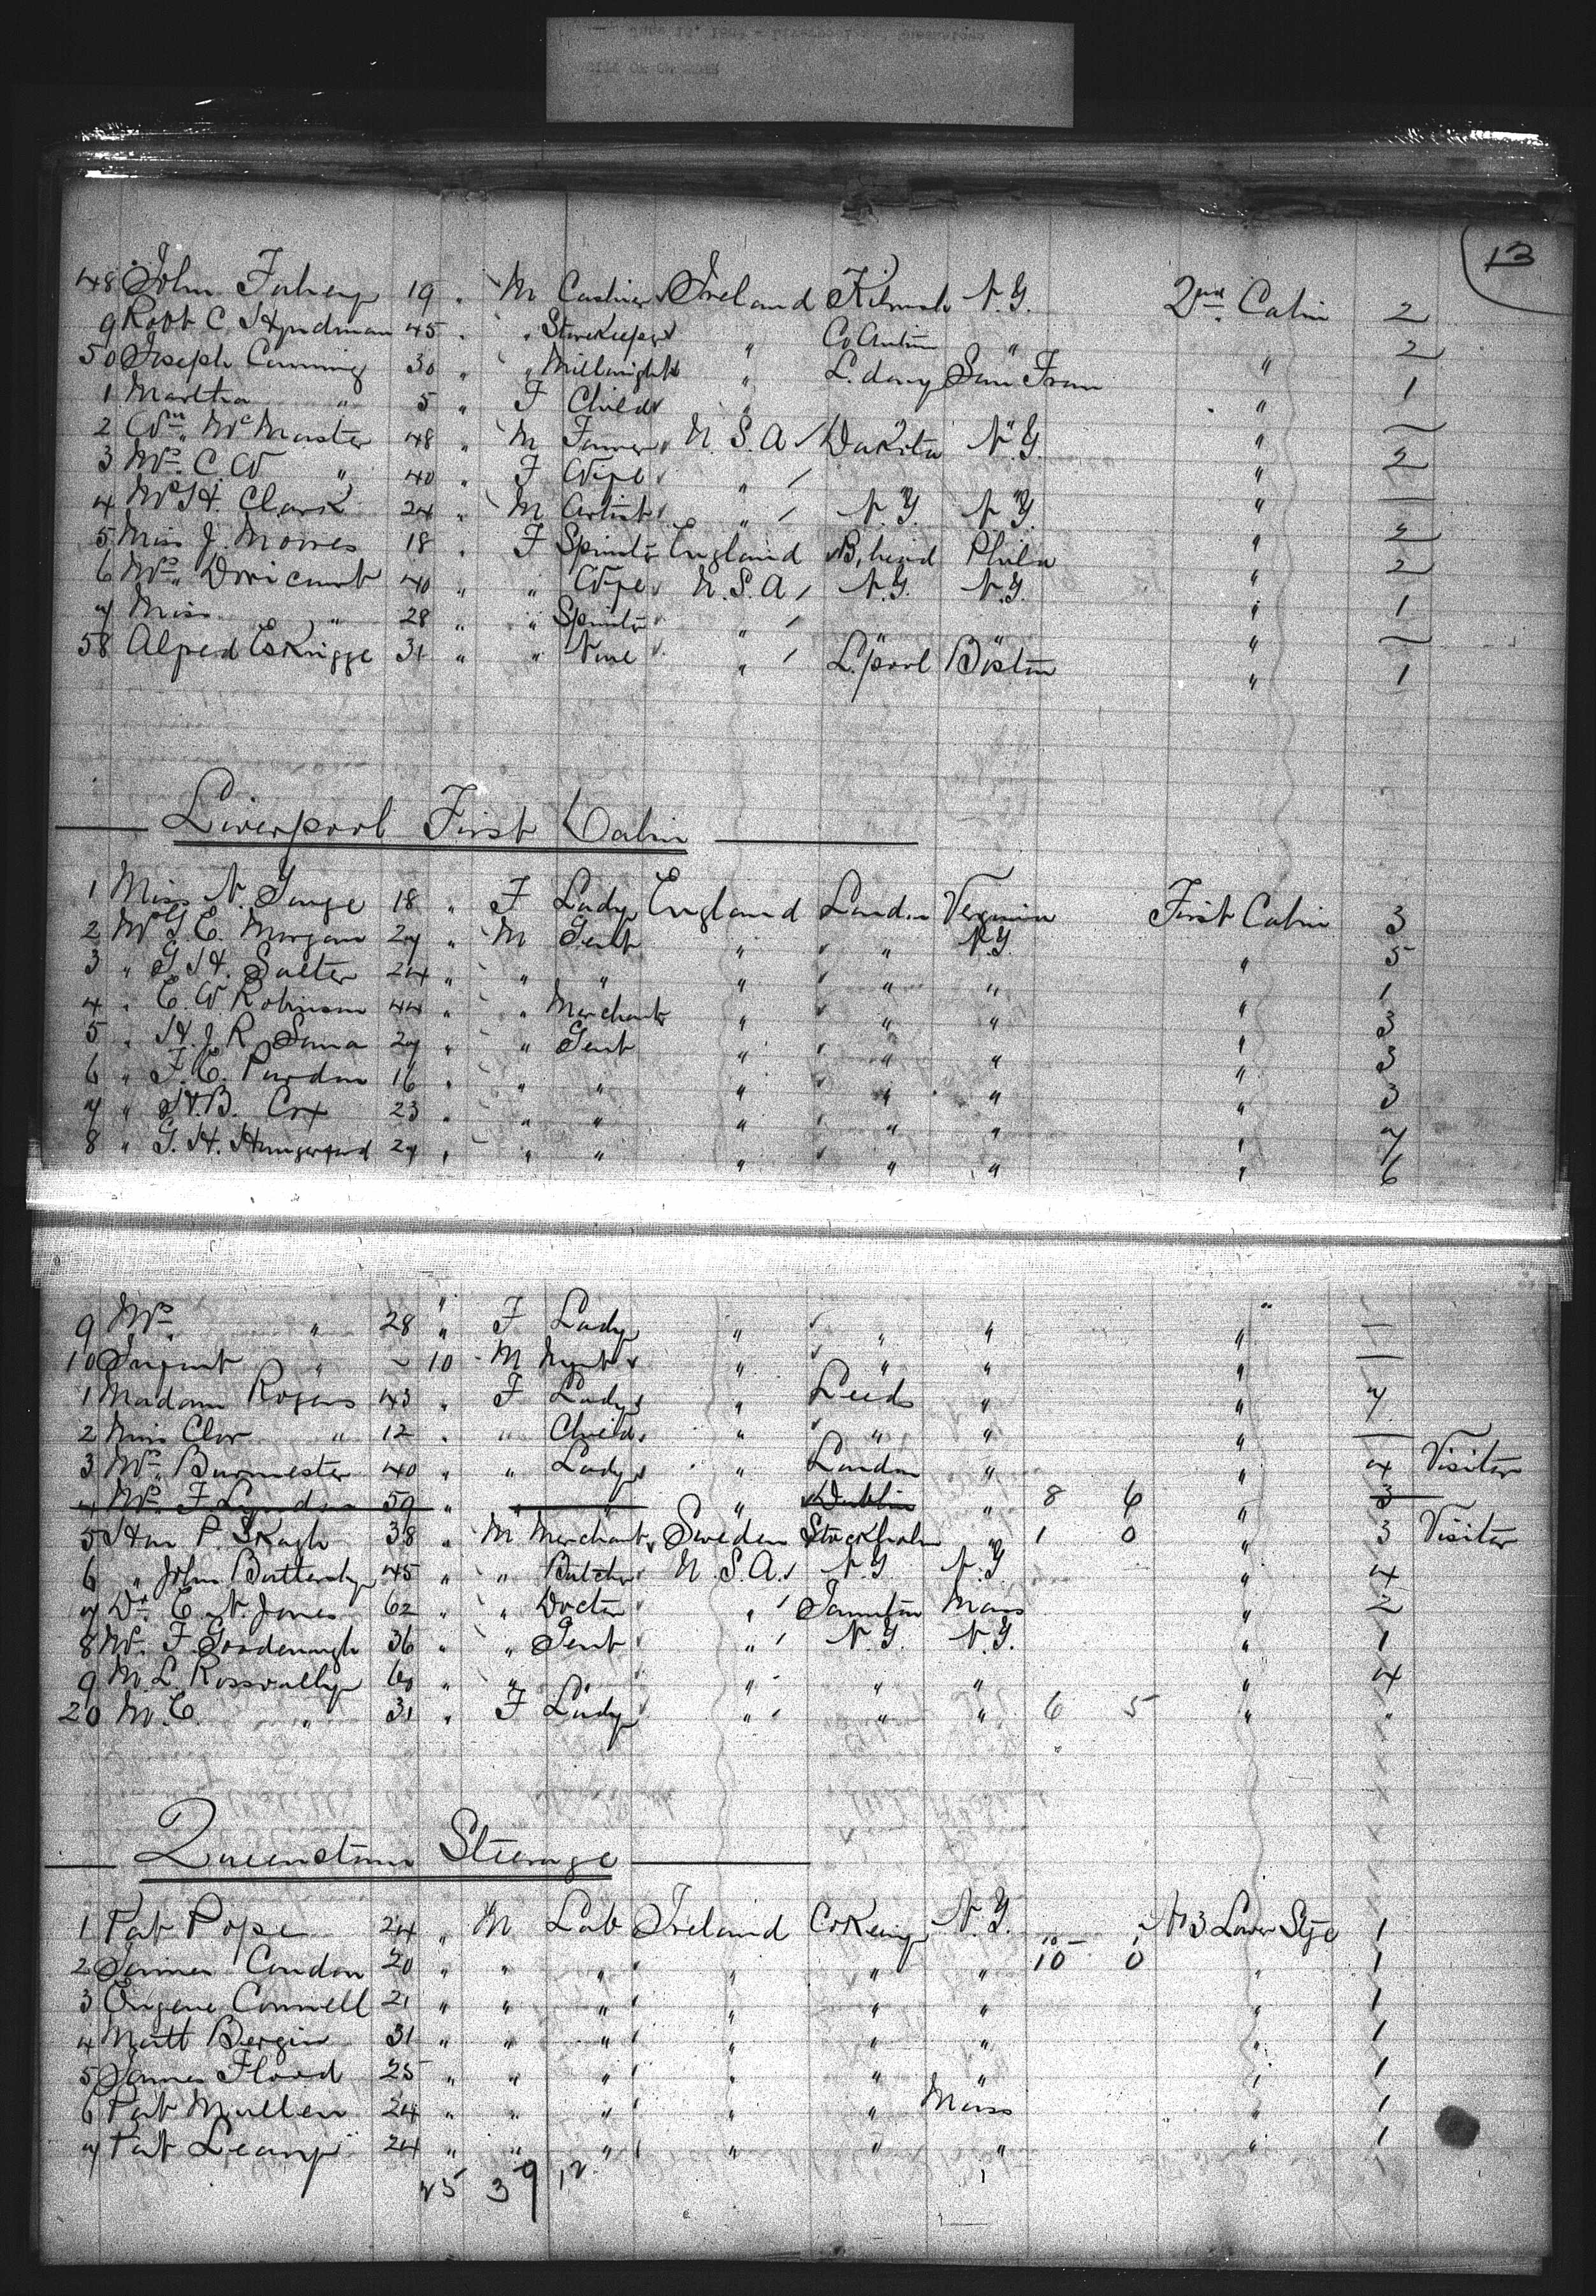 13
48 John Fahey 19 " M Cashier Ireland N.Y. 2nd Cabin 2
9 Robt C. Hyndman 45 " " Storekeeper " Co Antrim " 2
50 Joseph Cumming 30 " " Millwright " L.derry San Fran " 1
1 Martha " 5 " F Child " " —
2 Wm McMaster 48 " M Farmer U.S.A Dakota N.Y. " 2
3 Mrs C W " 40 " F Wife " " —
4 Mr H. Clark 24 " M Artist " N.Y. N.Y. " 2
5 Miss J. Morres 18 " F Spinster England B,head Phila " 2
6 Mrs 40 " " Wife U.S.A N.Y. N.Y. " 1
7 Miss " 28 " " Spinster " " —
58 Alfred Eskrigge 31 " " None " L'pool Boston " 1
Liverpool First Cabin
1 Miss N. 18 " F Lady England London Verginia First Cabin 3
2 Mr G.E. Morgan 27 " M Gent " " N.Y. " 5
3 " G.H. Salter 24 " " " " " " " 1
4 " E.W. Robinson 44 " " Merchant " " " " 3
5 " H.J.R. 27 " " Gent " " " " 3
6 " F.E. Purdon 16 " " " " " " " 3
7 " H.B. Cox 23 " " " " " " " 7
8 " G.H. Hungerford 27 " " " " " " " 6
9 Mrs " 28 " F Lady " " " " —
10 Infant " ~ 10 M " " " " —
1 Madam Rogers 43 " F Lady " Leeds " " 7
2 Miss Clar " 12 " " Child " " " " —
3 Mrs Burmester 40 " " Lady " London " " 4 Visitor
4 Mrs F Lyndon 59 " " " Dublin " 8 6 " 3
5 P. 38 " M Merchant Sweden Stockholm " 1 0 " 3 Visitor
6 " John Battersby 45 " " Butcher U.S.A. N.Y N.Y " 4
7 Dr E.N. Jones 62 " " Doctor " Taunton Mass " 2
8 Mr F. Goodenough 36 " " Gent " N.Y. N.Y. " 1
9 M.L. Rossvally 60 " " " " " " 4
20 M.E. " 31 " F Lady " " " 6 5 " "
Queenstown Steerage
1 Pat Pope 24 " M Lab Ireland N.Y. No 3 Lower Stge 1
2 James Condon 20 " " " " " " 10 0 " 1
3 Eugene Connell 21 " " " " " " " 1
4 Matt Bergin 31 " " " " " " " 1
5 James Flood 25 " " " " " " " 1
6 Pat Mullen 24 " " " " " Mass " 1
7 Pat Leamy 24 " " " " " " " 1
45 39 12